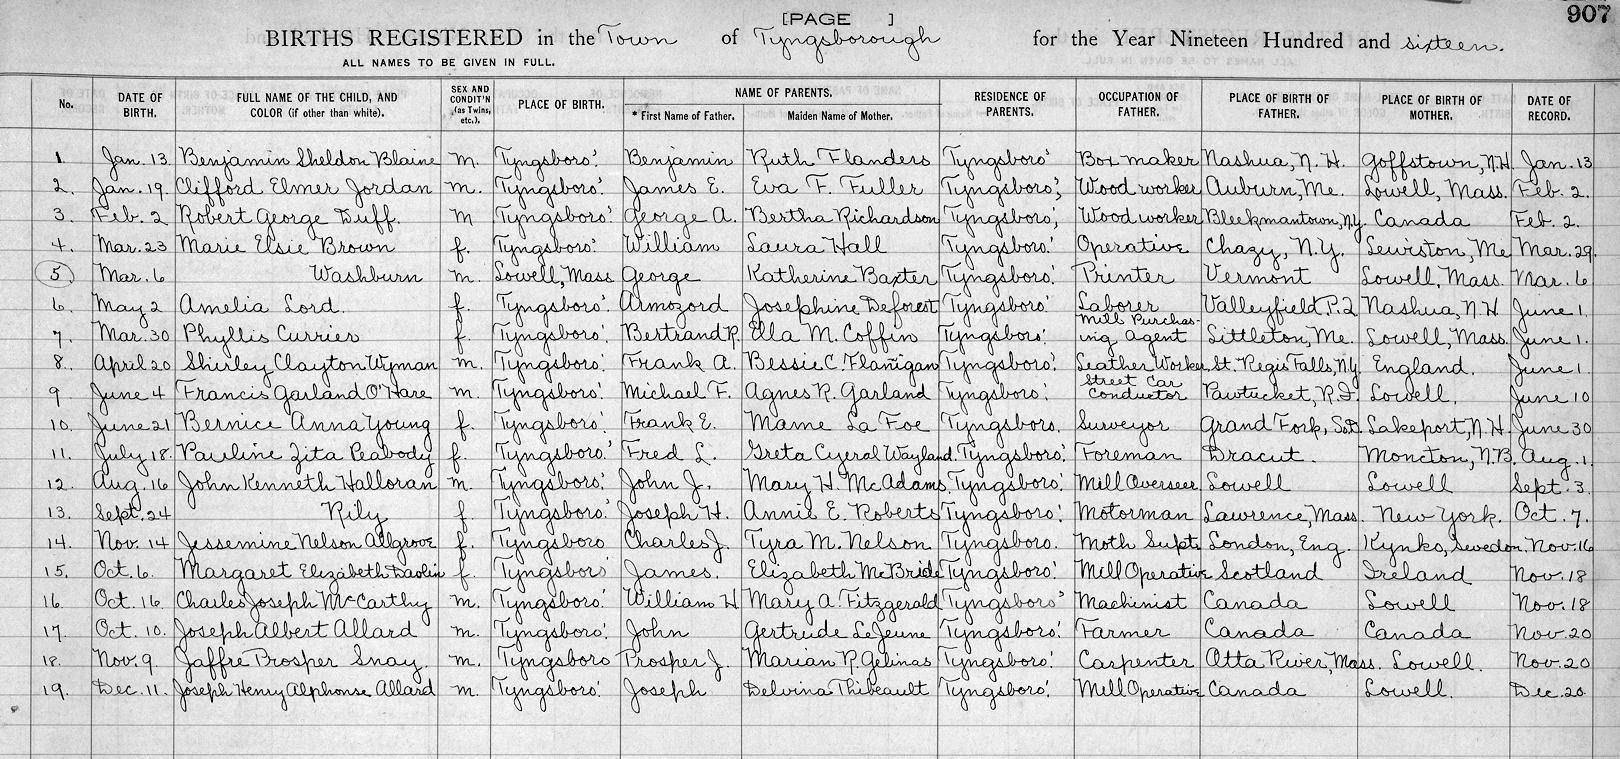 [PAGE ] 907
BIRTHS REGISTERED in the Town of Tyngsborough for the Year Nineteen Hundred and sixteen.
ALL NAMES TO BE GIVEN IN FULL.
No. DATE OF BIRTH. FULL NAME OF THE CHILD, AND COLOR (if other than white). SEX AND CONDIT'N (as Twins, etc.). PLACE OF BIRTH. NAME OF PARENTS. * First Name of Father. Maiden Name of Mother. RESIDENCE OF PARENTS. OCCUPATION OF FATHER. PLACE OF BIRTH OF FATHER. PLACE OF BIRTH OF MOTHER. DATE OF RECORD.
1. Jan. 13. Benjamin Sheldon Blaine m. Tyngsboro'. Benjamin Ruth Flanders Tyngsboro' Box maker Nashua, N.H. Goffstown, N.H. Jan. 13
2. Jan. 19. Clifford Elmer Jordan m. Tyngsboro'. James E. Eva F. Fuller Tyngsboro'; Wood worker Auburn, Me. Lowell, Mass. Feb. 2.
3. Feb. 2 Robert George Duff. m Tyngsboro'. George A. Bertha Richardson Tyngsboro', Wood worker Bleekmantown, N.Y. Canada Feb. 2.
4. Mar. 23 Marie Elsie Brown f. Tyngsboro' William Laura Hall Tyngsboro'. Operative Chazy, N.Y. Lewiston, Me Mar. 29.
5 Mar. 6 Washburn m. Lowell, Mass George Katherine Baxter Tyngsboro'. Printer Vermont Lowell, Mass. Mar. 6
6. May 2 Amelia Lord. f. Tyngsboro'. Armozord Josephine Deforest Tyngsboro'. Laborer Valleyfield, P.Q Nashua, N.H June 1.
7. Mar. 30 Phyllis Currier f. Tyngsboro'. Bertrand R. Ella M. Coffin Tyngsboro'. Mill Purchasing Agent Littleton, Me. Lowell, Mass. June 1.
8. April 20 Shirley Clayton Wyman m. Tyngsboro'. Frank A. Bessie C. Flanigan Tyngsboro'. Leather Worker St. Regis Falls, N.Y. England. June 1
9 June 4 Francis Garland O'Hare m. Tyngsboro'. Michael F. Agnes R. Garland Tyngsboro'. Street Car Conductor Pawtucket, R.I. Lowell. June 10
10. June 21 Bernice Anna Young f. Tyngsboro'. Frank E. Mame La Foe Tyngsboro. Surveyor Grand Fork, Lakeport, N.H. June 30
11. July 18. Pauline Zita Peabody f. Tyngsboro'. Fred L. Greta Wayland. Tyngsboro'. Foreman Dracut. Moncton, N.B. Aug. 1.
12. Aug. 16 John Kenneth Halloran m. Tyngsboro'. John J. Mary H. McAdams. Tyngsboro'. Mill Overseer Lowell Lowell Sept. 3.
13. Sept. 24 Rily f Tyngsboro'. Joseph H. Annie E. Roberts Tyngsboro'. Motorman Lawrence, Mass. New York. Oct. 7.
14. Nov. 14 Jessemine Nelson Allgrove f. Tyngsboro Charles J. Tyra M. Nelson Tyngsboro. Moth Supt. London, Eng. Kynko, Swedon. Nov. 16
15. Oct. 6. Margaret Elizabeth f. Tyngsboro' James. Elizabeth McBride Tyngsboro'. Mill Operative Scotland Ireland Nov. 18
16 Oct. 16 Charles Joseph McCarthy m. Tyngsboro'. William H Mary A. Fitzgerald Tyngsboro' Machinist Canada Lowell Nov. 18
17. Oct. 10. Joseph Albert Allard m. Tyngsboro'. John Gertrude LeJeune Tyngsboro'. Farmer Canada Canada Nov. 20
18. Nov. 9. Jaffre Prosper Snay. m. Tyngsboro Prosper J. Marian R. Gelinas Tyngsboro'. Carpenter Otta River, Mass. Lowell. Nov. 20
19. Dec. 11. Joseph Henry Alphonse Allard m. Tyngsboro'. Joseph Delvina Thibeault Tyngsboro'. Mill Operative Canada Lowell. Dec. 20